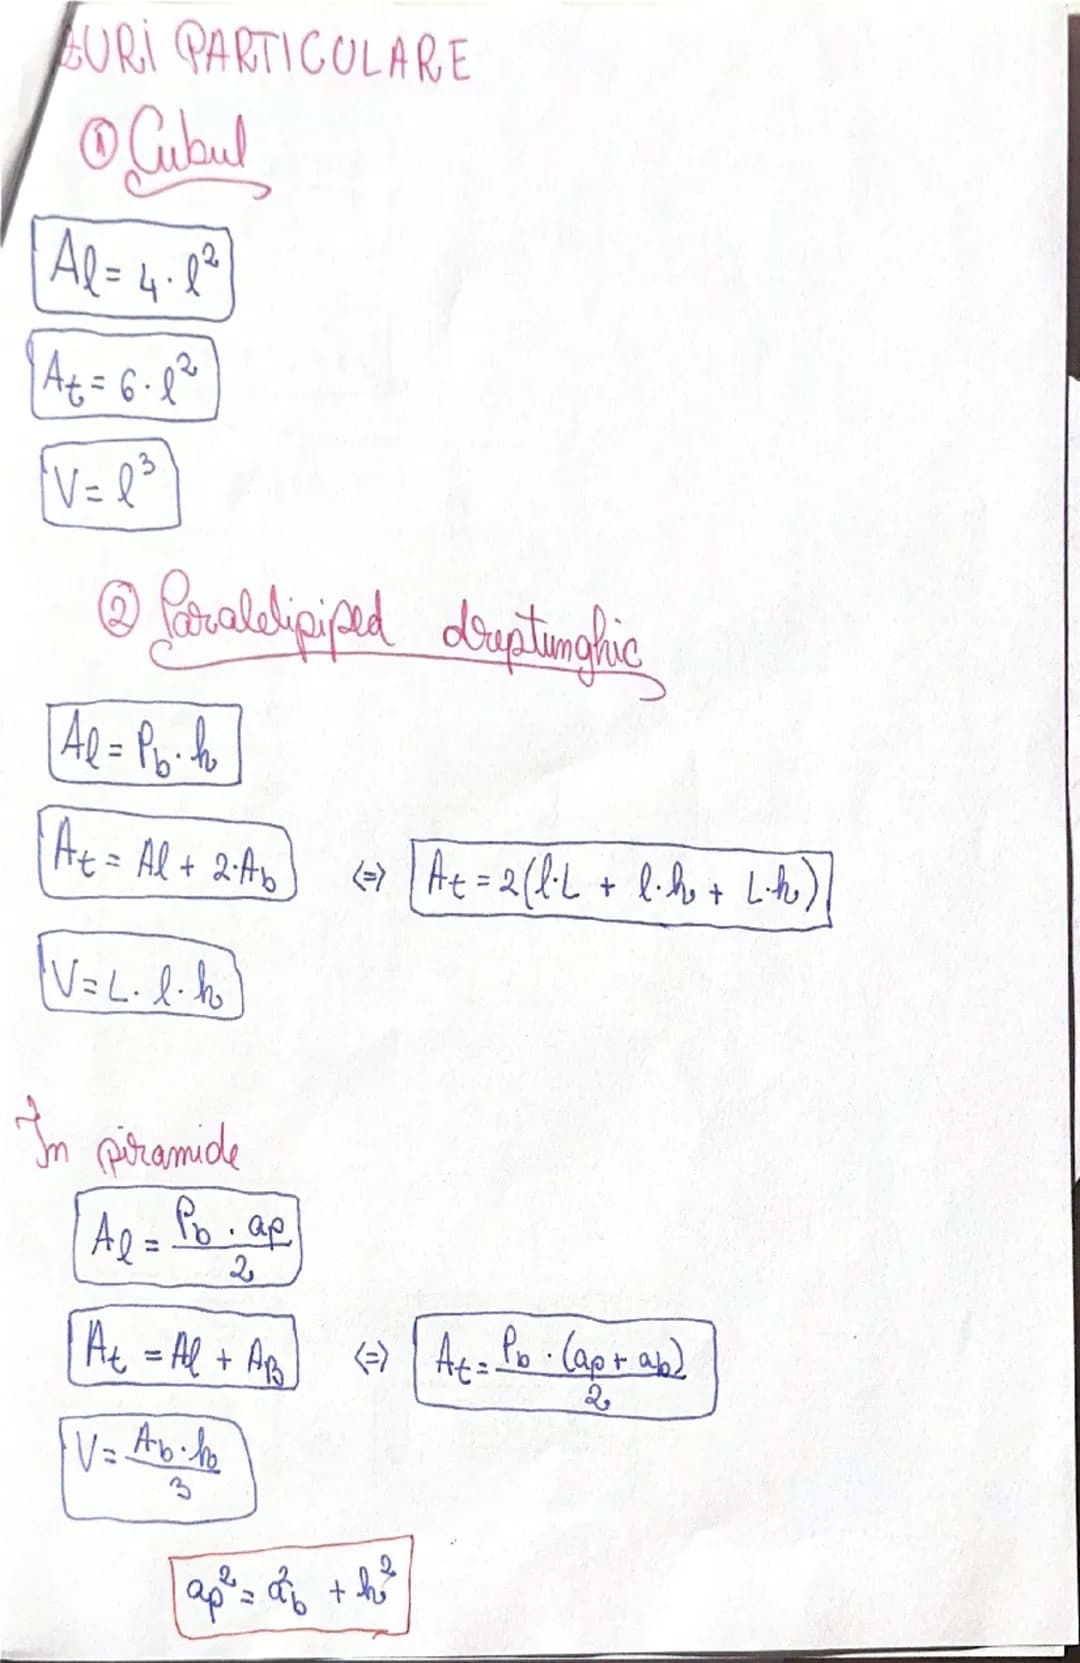 ZURI PARTICULARE
① Cubul
Al = 4 · l²
At = 6 · l²
V = l³
② Paralelipiped dreptunghic
Al = Pb · h
At = Al + 2·Ab <=> At = 2(l·L + l·h + L·h)
V = L · l · h
În piramide
Al = Pb · ap / 2
At = Al + AB <=> At = Pb · (ap + ab) / 2
V = Ab · h / 3
ap² = a²b + h²